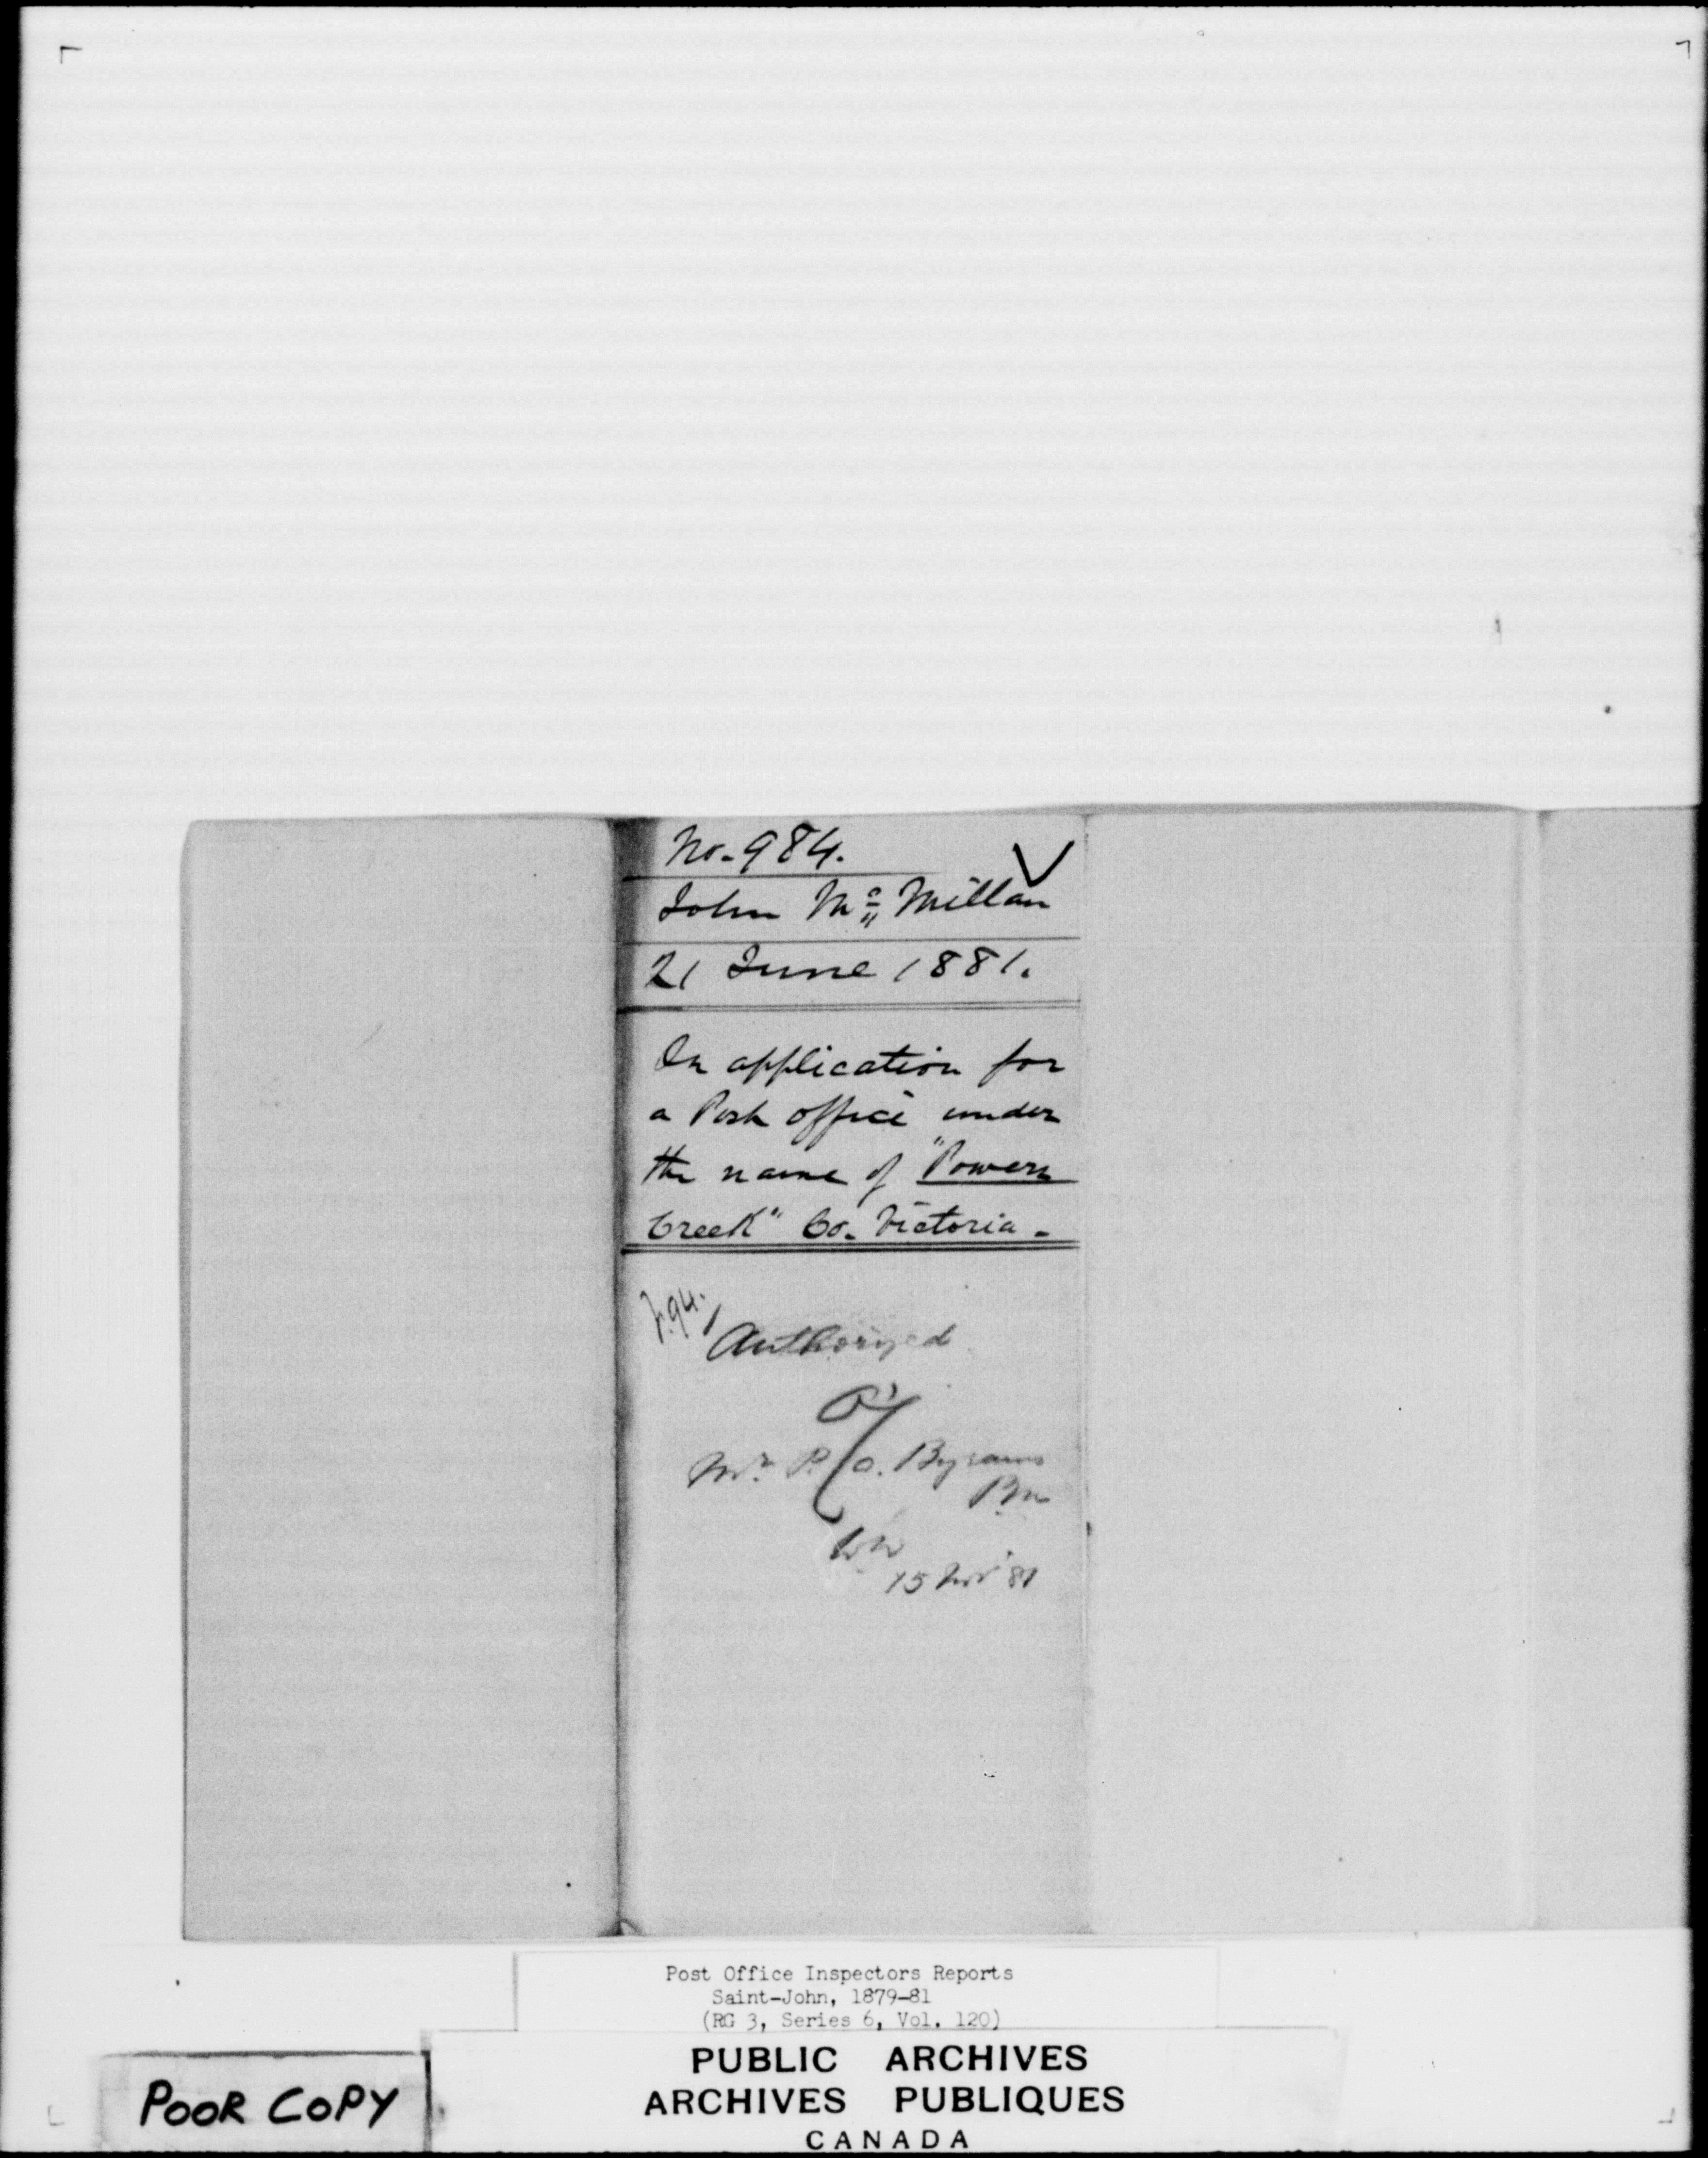 No. 984.
John Mc Millan
21 June 1881.
On application for
a Post office under
the name of "Powers
Creek" Co. Victoria -
Authorized
Mr P. O. Byrams
PM
15 Nov 81
Post Office Inspectors Reports
Saint-John, 1879-81
(RG 3, Series 6, Vol. 120)
PUBLIC ARCHIVES
ARCHIVES PUBLIQUES
CANADA
POOR COPY